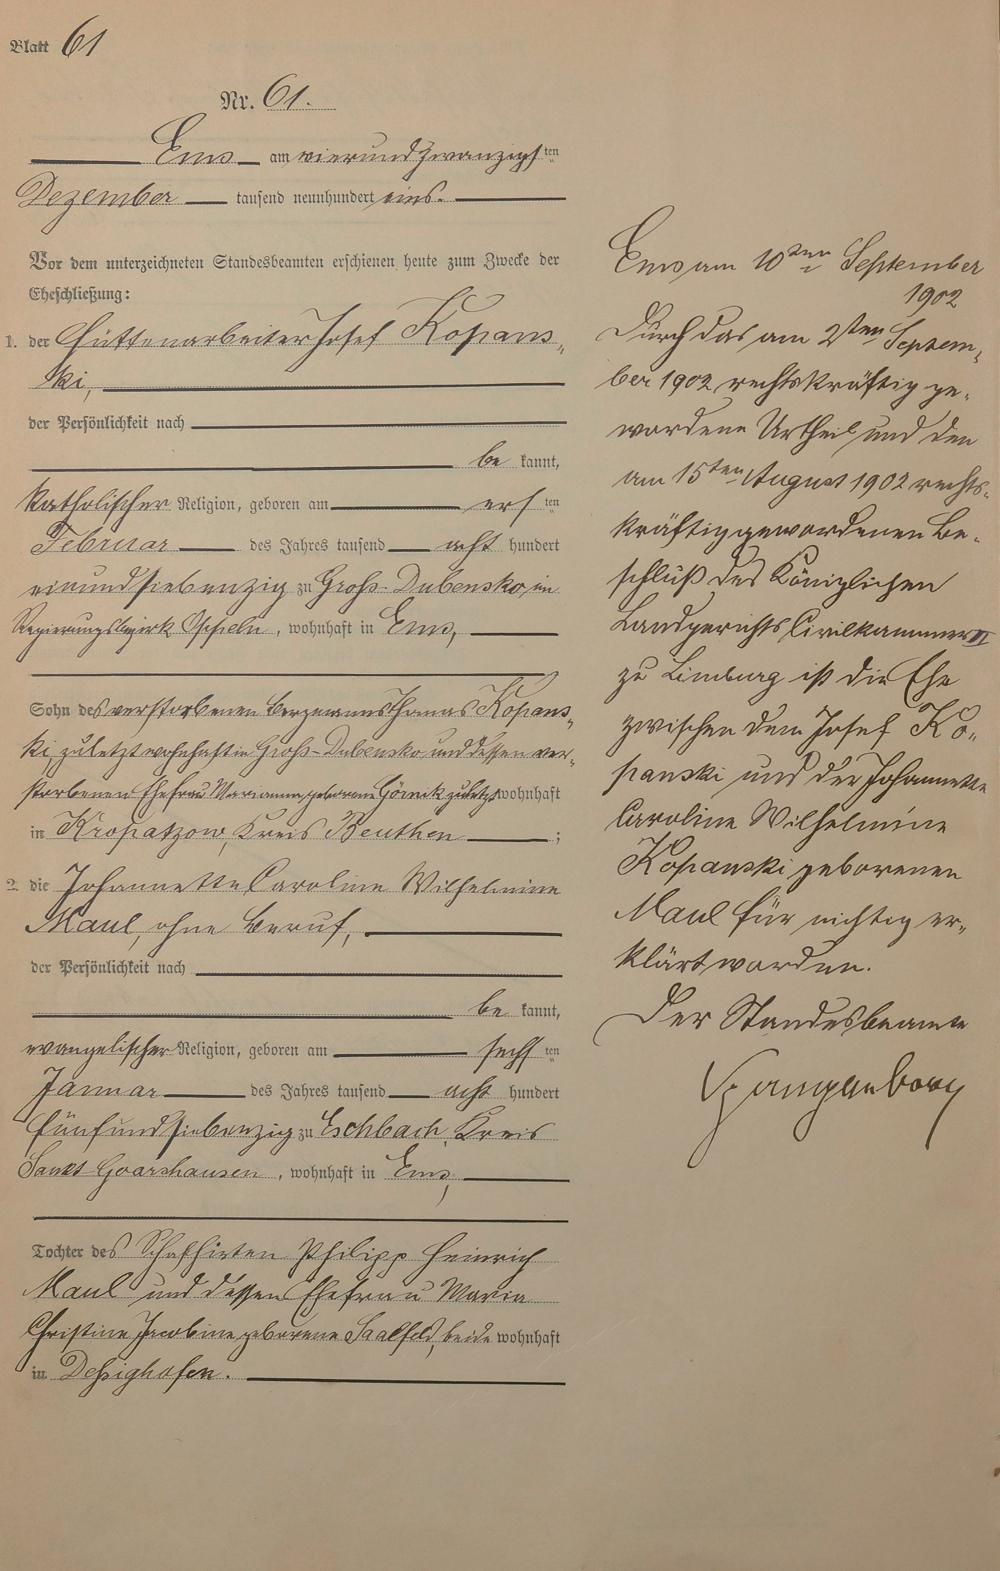 Blatt 61
Nr. 61.
Ems am vierundzwanzigsten
Dezember tausend neunhundert eins.
Vor dem unterzeichneten Standesbeamten erschienen heute zum Zwecke der
Eheschließung:
1. der Hüttenarbeiter Josef Kopans-
ki,
der Persönlichkeit nach
be kannt,
katholischer Religion, geboren am ersten
Februar des Jahres tausend acht hundert
einundsiebenzig zu Groß-Dubensko, im
Regierungsbezirk Oppeln, wohnhaft in Ems,
Sohn des verstorbenen Bergmanns Thomas Kopans-
ki, zuletzt wohnhaft in Groß-Dubensko und dessen ver-
storbenen Ehefrau Marianna, geborene Gornik zuletzt wohnhaft
in Kropatzow, Kreis Beuthen;
2. die Johannette Caroline Wilhelmine
Maul, ohne Beruf,
der Persönlichkeit nach
be kannt,
evangelischer Religion, geboren am sechsten
Januar des Jahres tausend acht hundert
fünfundsiebenzig zu Eschbach, Kreis
Sankt Goarshausen, wohnhaft in Ems,
Tochter des Schafhirten Philipp Heinrich
Maul und dessen Ehefrau Maria
Christine Jacobine geborene Saalfeld, beide wohnhaft
in Dessighofen.
Ems am 10ten September
1902
Durch das am 2ten Septem-
ber 1902 rechtskräftig ge-
wordene Urtheil und den
am 15ten August 1902 rechts-
kräftig gewordenen Be-
schluß des Königlichen
Landgerichts Civilkammer II
zu Limburg ist die Ehe
zwischen dem Josef Ko-
panski und der Johannette
Caroline Wilhelmine
Kopanski geborenen
Maul für nichtig er-
klärt worden.
Der Standesbeamte
Spangenberg